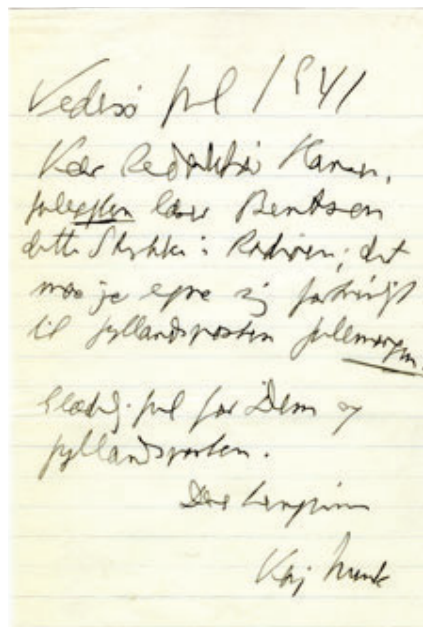 Vedersø jul 1941
Kær Redaktør Hansen,
juleaften læser Bentsen
dette Stykke i Radioen; det
maa jo egne sig fortrinligt
til Jyllandsposten julemorgen.
Glædelig jul for Dem og
Jyllandsposten.
Deres hengivne
Kaj Munk